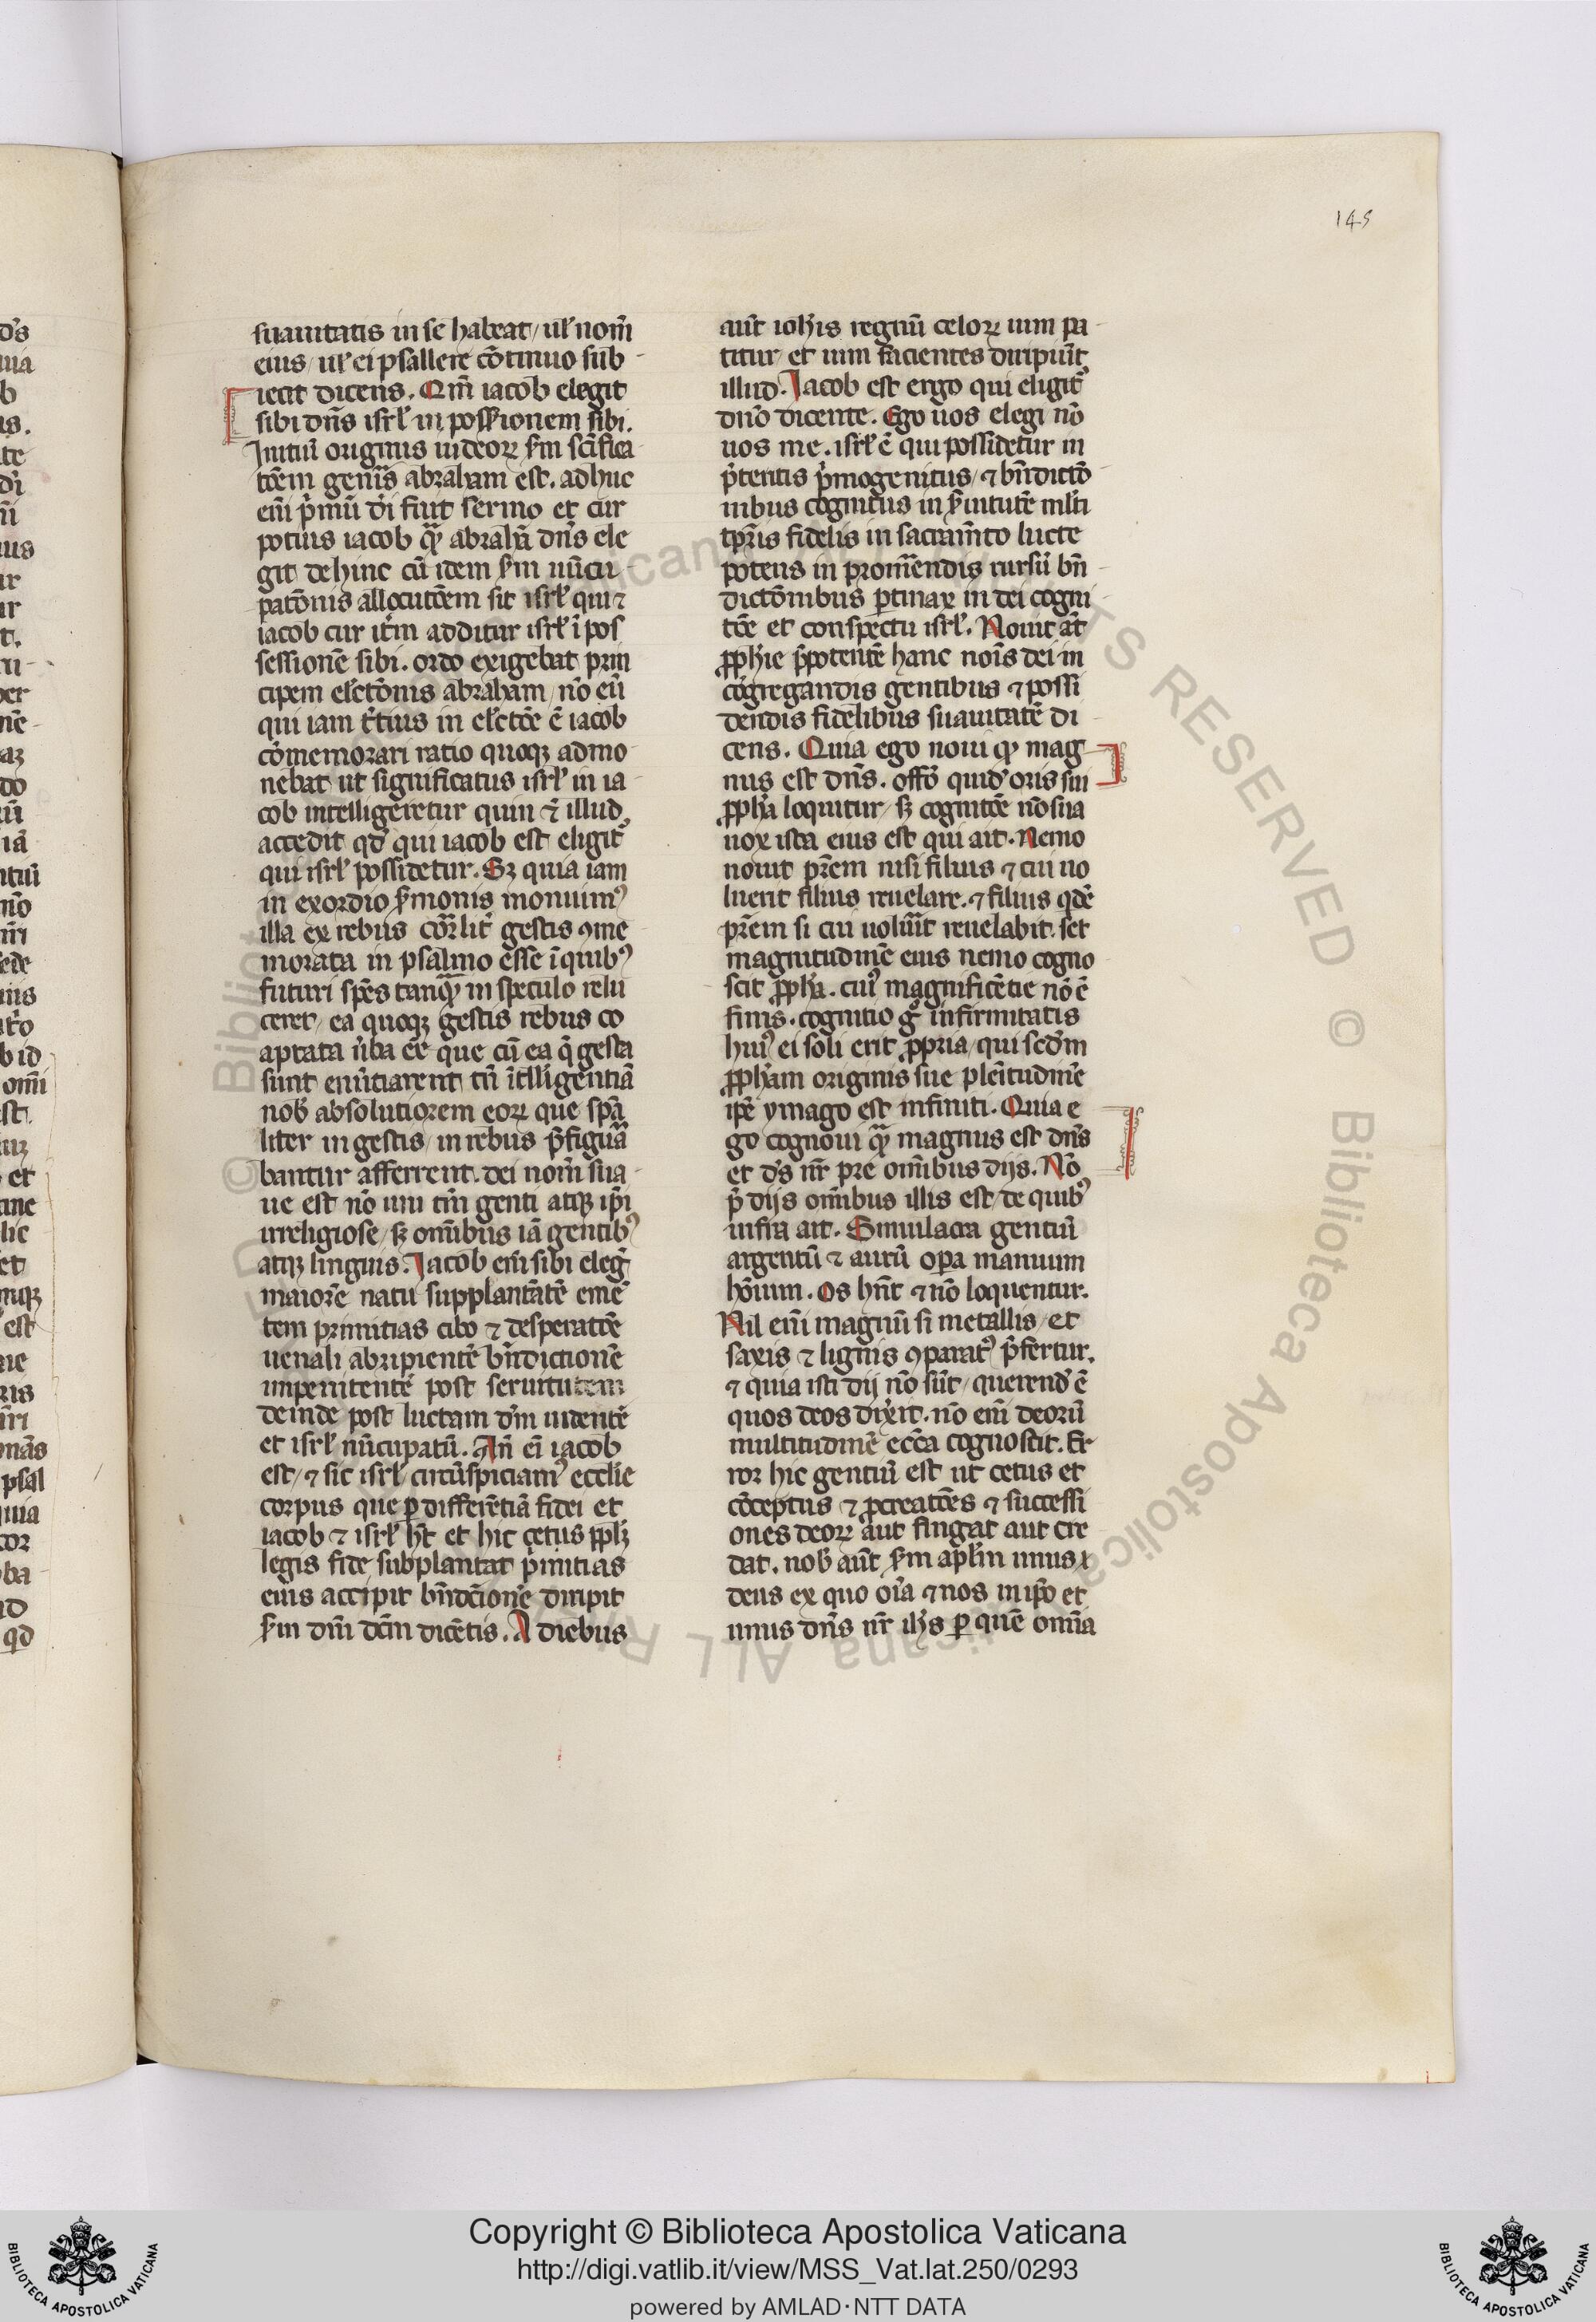 145
suauitatis in se habeat / ul̛ nom̄
eius / ul̛ ei psallere ꝯ̄tinuo sub-
iecit dicens. Qm̄ iacob elegit
sibi dn̄s isrl̛ in possessionem sibi.
Initiū originis iudeoꝝ ẜm sc̄ifica
tōem generis abraham est. adhuc
eni̅ p̓mū d̓i fuit sermo et cur
potius iacob qͣ̄ abrahā dn̄s ele
git dehinc cū idem ẜm nūcu-
patōnis allocutōem sit isrl̛ qui ⁊
iacob cur it̓m additur isrl̛ ī pos
sessionē sibi. ordo exigebat prin
cipem elc̄tōnis abraham / nō eū
qui iam t̓tius in elc̄tōe ē iacob
cōmemorari ratio quoqꝫ admo-
nebat ut significatus isrl̛ in ia-
cob intelligeretur quin ⁊ illud
accedit qd̓ qui iacob est eligit᷑
qui isrl̛ possidetur. Sꝫ quia iam
in exordio ẜmonis monuimꝰ
illa ex rebus corꝑalit̓ gestis ꝯme-
morata in psalmo esse ī quibꝰ
futuri sp̄es tanqͣ̄ in speculo relu
ceret / ea quoqꝫ gestis rebus co
aptata u̓ba eē que cū ea q̄ gesta
sunt enūtiarent tn̄ ītll̛igentiā
nob̓ absolutiorem eoꝝ que spā
liter in gestis / in rebus p̄figura
bantur afferrent. dei nom̄ sua-
ue est nō uni tm̄ genti atqꝫ ip̄i
irreligiose / sꝫ om̄ibus iā gentibꝰ
atqꝫ linguis. Iacob eni̅ sibi eleg̓
maiorē natu supplantātē emē
tem primitias cibo ⁊ desperatōe
uenali abripientē bn̄dictionē
impenitentē post seruitutem
deinde post luctam dm̄ uidentē
et isrl̛ nūcupatū. An̄ ei̅ iacob
est / ⁊ sic isrl̛ / circūspiciamꝰ eccl̛ie
corpus que ꝑ differētiā fidei et
iacob ⁊ isrl̛ hꝫ̄ et hic cetus ppl̛s
legis fide subplantat p̓mitias
eius accipit bn̄dc̄ionē diripit
ẜm dn̄i dc̄m dicētis. A diebus
aut̄ ioh̓is regnū celoꝝ uim pa-
titur / et uim facientes diripiūt
illud. Iacob est ergo qui eligit᷑
dn̄o dicente. Ego uos elegi nō
uos me. isrl̛ ē qui possidetur in
p̄tentis p̓mogenitus / ⁊ bn̄dictō-
nibus cognitus in ẜuitutē ml̓ti
tꝑis fidelis in sacram̄to lucte
potens in promerendis rursū bn̄-
dictōnibus ꝑtinax in dei cogni
tōe et conspectu isrl̛. Nouit aūt
ꝓph̓ie p̄potentē hanc nois̄ dei in
cōgregandis gentibus ⁊ possi
dendis fidelibus suauitatē di-
cens. Quia ego noui qͥ mag-
nus est dn̄s. offō quid̓ oris sui
ꝓph̓a loquitur / sꝫ cognitōe nō sua
uox ista eius est qui ait. Nemo
nouit pr̄em nisi filius ⁊ cui uo
luerit filius reuelare. ⁊ filius qdē
pr̄em si cui uolūit reuelabit. set
magnitudinē eius nemo cogno-
scit ꝓph̓a. cuiꝰ magnificētie nō ē
finis. cognitio gͦ infirmitatis
huiꝰ ei soli erit ꝓpria / qui scd̓m
ꝓph̓am originis sue plenitudinē
ip̄e ymago est infiniti. Quia e
go cognoui qͣ̄ magnus est dn̄s
et d̓s nr̄ pre om̄ibus dijs. Nō
p̄ dijs om̄ibus illis est / de quibꝰ
infra ait. Simulacra gentiū
argentū ⁊ aurū oꝑa manuum
hōium. Os hn̄t ⁊ nō loquentur.
Nil eni̅ magnū si metallis / et
saxis ⁊ lignis ꝯparatꝰ p̄fertur.
⁊ quia isti dij nō sūt / querend̓ ē
quos deos dixerit. nō eni̅ deorū
multitudinē ecc̄a cognoscit. Er-
ror hic gentiū est ut cetus et
cōceptus ⁊ ꝓcreatōes ⁊ successi
ones deoꝝ aut fingat aut cre
dat. nob̓ aūt ẜm apl̓m unus ē
deus ex quo oi̅a ⁊ nos in ip̄o et
unus dn̄s nr̄ ih̄s ꝑ quē omīa
Copyright © Biblioteca Apostolica Vaticana
http://digi.vatlib.it/view/MSS_Vat.lat.250/0293
powered by AMLAD·NTT DATA
BIBLIOTECA APOSTOLICA VATICANA
BIBLIOTECA APOSTOLICA VATICANA